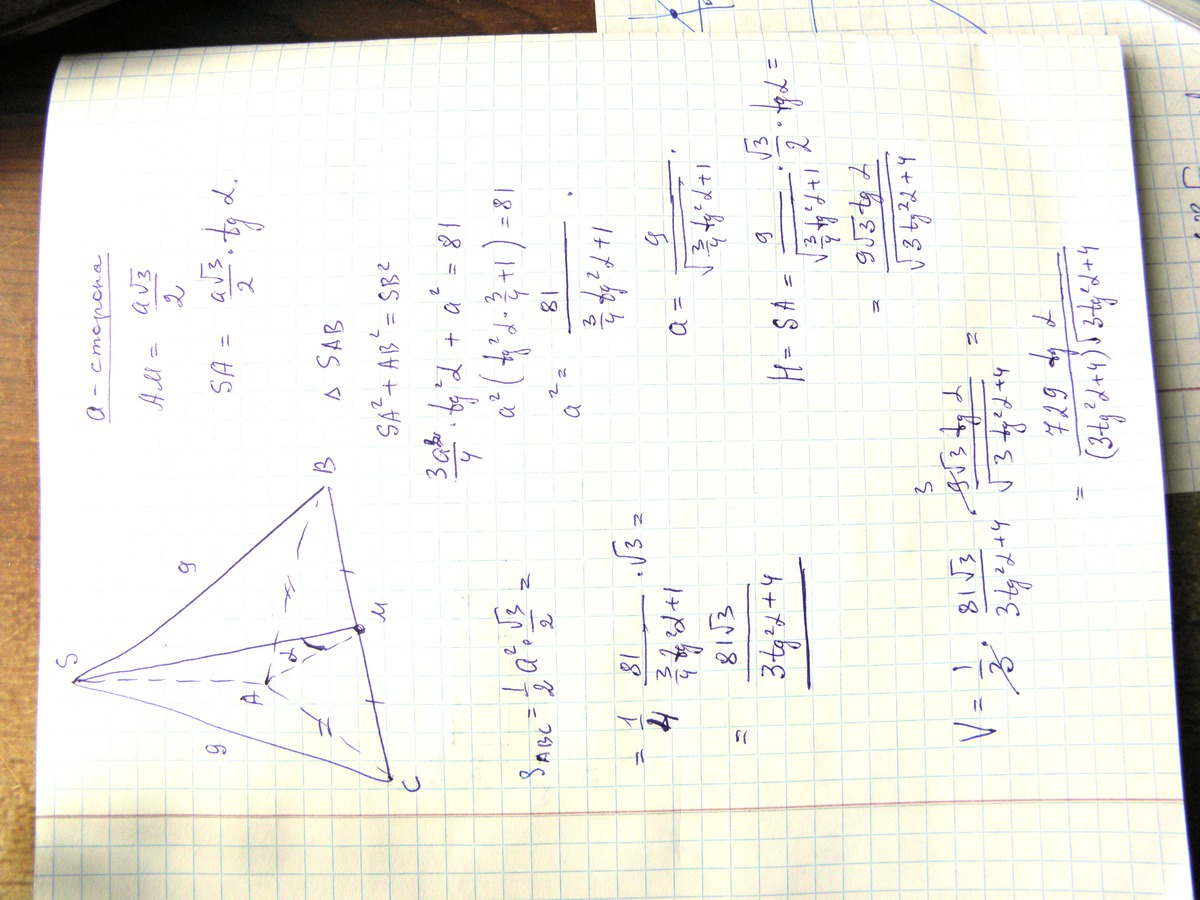 a - сторона
AM = a√3/2
SA = a√3/2 · tg α.
Δ SAB
SA² + AB² = SB²
3a²/4 · tg²α + a² = 81
a² (tg²α · 3/4 + 1) = 81
a² = 81/(3/4 tg²α + 1) .
a = 9/√(3/4 tg²α + 1) .
H = SA = 9/√(3/4 tg²α + 1) · √3/2 · tg α =
= 9√3 tg α/√(3 tg²α + 4)
S
9
9
A
α
B
M
C
S ABC = 1/2 a² · √3/2 =
= 1/4 · 81/(3/4 tg²α + 1) · √3 =
= 81√3/(3 tg²α + 4)
3
V = 1/3 · 81√3/(3 tg²α + 4) · 9√3 tg α/√(3 tg²α + 4) =
= 729 tg α/((3 tg²α + 4)√(3 tg²α + 4))